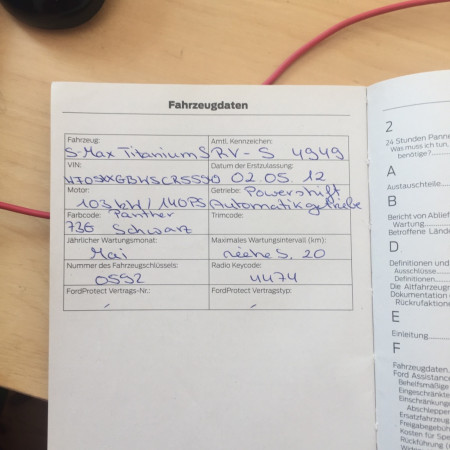 Fahrzeugdaten
Fahrzeug: Amtl. Kennzeichen:
S-Max Titanium S RV-S 4949
VIN: Datum der Erstzulassung:
02.05.12
Motor: Getriebe: Powershift
103 kW / 140 PS Automatikgetriebe
Farbcode: Panther Trimcode:
736 Schwarz
Jährlicher Wartungsmonat: Maximales Wartungsintervall (km):
Mai siehe S. 20
Nummer des Fahrzeugschlüssels: Radio Keycode:
0592 4474
FordProtect Vertrags-Nr.: FordProtect Vertragstyp:
2
24 Stunden Panne
Was muss ich tun,
benötige?
A
Austauschteile
B
Bericht von Ablief
Wartung
Betroffene Lände
D
Definitionen und
Ausschlüsse
Definitionen
Die Altfahrzeug
Dokumentation
Rückrufaktion
E
Einleitung
F
Fahrzeugdaten
Ford Assistance
Behelfsmäßige
Eingeschränkte
Einschränkung
Abschleppen
Ersatzfahrzeug
Freigabegebüh
Kosten für Spe
Rückführung (